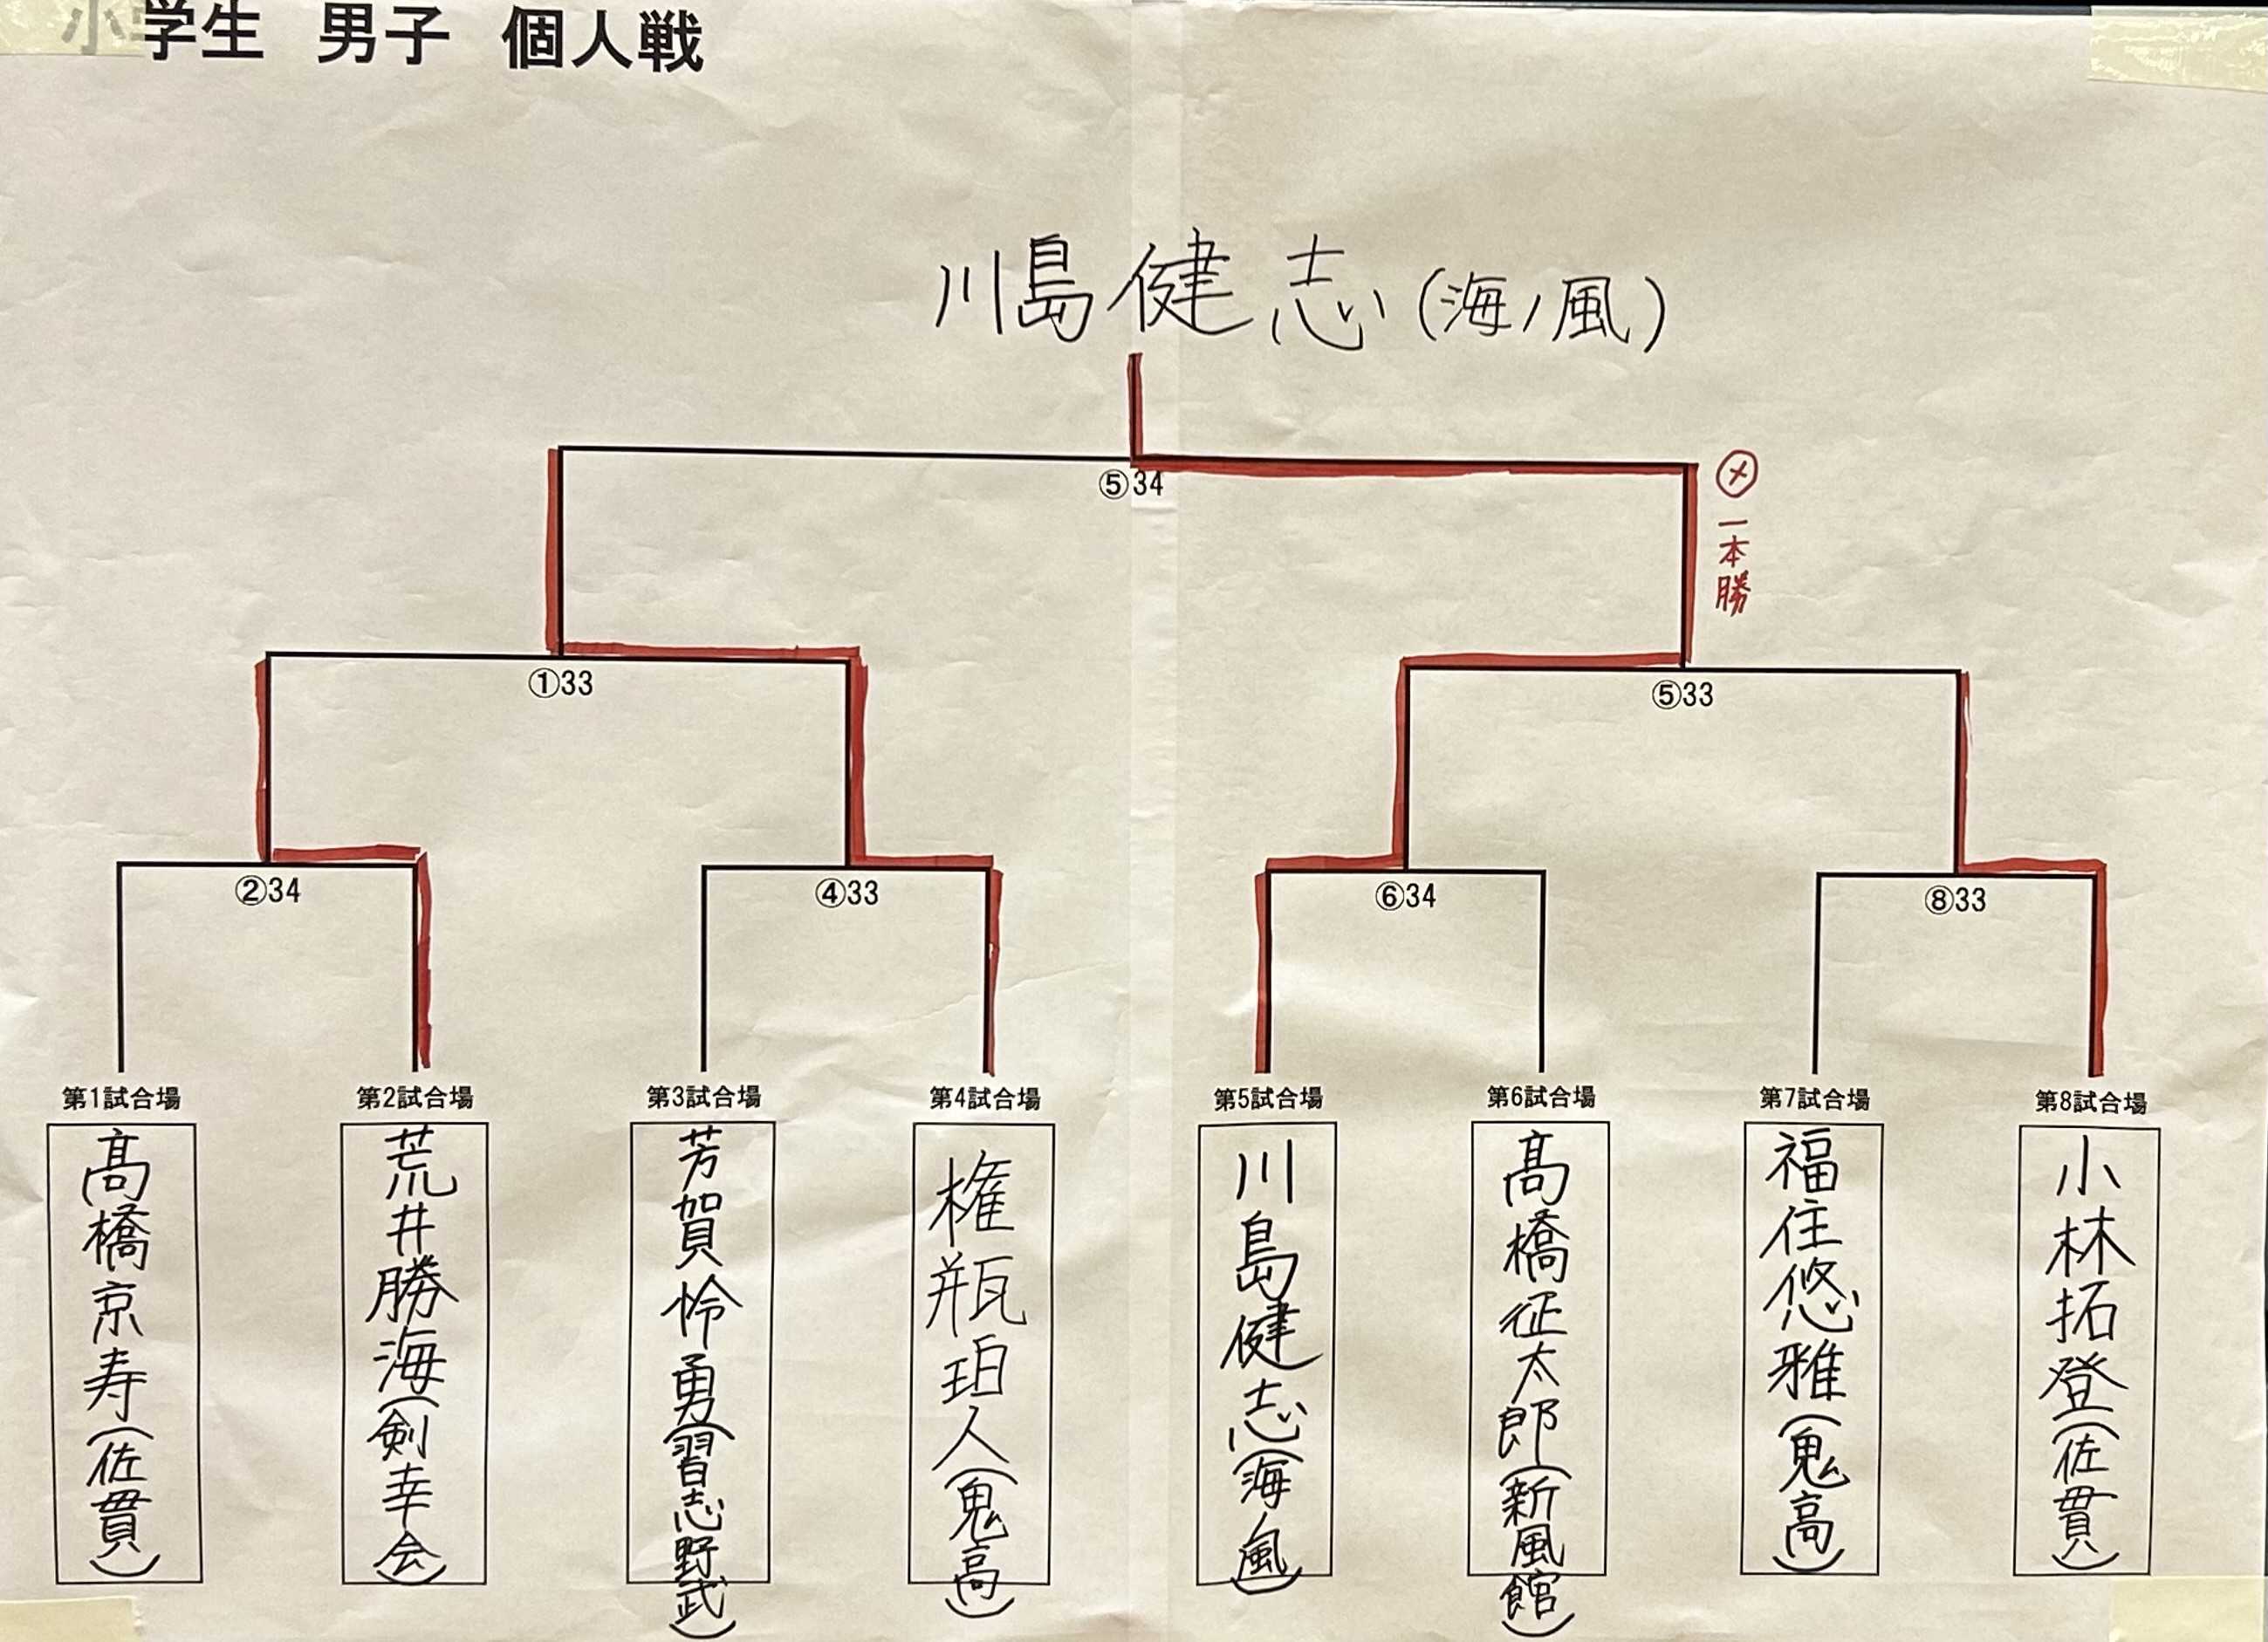 小学生 男子 個人戦
川島健志(海ノ風)
⑤34
㋱
一本勝
①33
⑤33
②34
④33
⑥34
⑧33
第1試合場
第2試合場
第3試合場
第4試合場
第5試合場
第6試合場
第7試合場
第8試合場
髙橋京寿(佐貫)
荒井勝海(剣幸会)
芳賀怜勇(習志野武)
権瓶珀人(鬼高)
川島健志(海ノ風)
髙橋征太郎(新風館)
福住悠雅(鬼高)
小林拓登(佐貫)